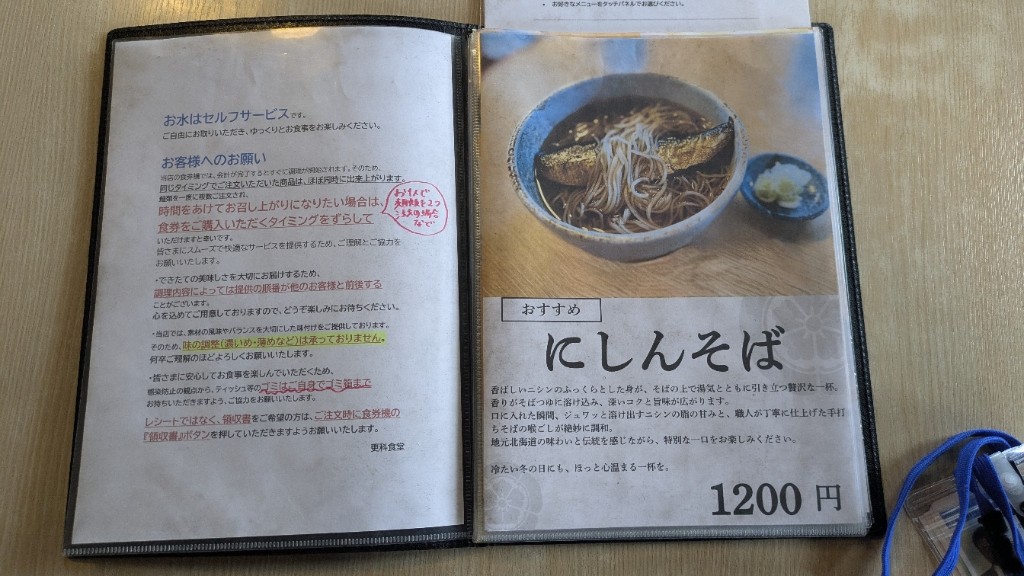 お好きなメニューをタッチパネルでお選びください。
お水はセルフサービスです。
ご自由にお取りいただき、ゆっくりとお食事をお楽しみください。
お客様へのお願い
当店の食券機では、会計が完了するとすぐに調理が開始されます。そのため、
同じタイミングでご注文いただいた商品は、ほぼ同時に出来上がります。
麺類を一度に複数ご注文され、
時間をあけてお召し上がりになりたい場合は、
食券をご購入いただくタイミングをずらして
いただけますと幸いです。
皆さまにスムーズで快適なサービスを提供するため、ご理解とご協力を
お願いいたします。
お1人で
麺類を2つ
注文の場合
など
・できたての美味しさを大切にお届けするため、
調理内容によっては提供の順番が他のお客様と前後する
ことがございます。
心を込めてご用意しておりますので、どうぞ楽しみにお待ちください。
・当店では、素材の風味やバランスを大切にした味付けをご提供しております。
そのため、味の調整(濃いめ・薄めなど)は承っておりません。
何卒ご理解のほどよろしくお願いいたします。
・皆さまに安心してお食事を楽しんでいただくため、
感染防止の観点から、ティッシュ等のゴミはご自身でゴミ箱まで
お持ちいただきますよう、ご協力をお願いいたします。
レシートではなく、領収書をご希望の方は、ご注文時に食券機の
『領収書』ボタンを押していただきますようお願いいたします。
更科食堂
おすすめ
にしんそば
香ばしいニシンのふっくらとした身が、そばの上で湯気とともに引き立つ贅沢な一杯。
香りがそばつゆに溶け込み、深いコクと旨味が広がります。
口に入れた瞬間、ジュワッと溶け出すニシンの脂の甘みと、職人が丁寧に仕上げた手打
ちそばの喉ごしが絶妙に調和。
地元北海道の味わいと伝統を感じながら、特別な一口をお楽しみください。
冷たい冬の日にも、ほっと心温まる一杯を。
1200 円